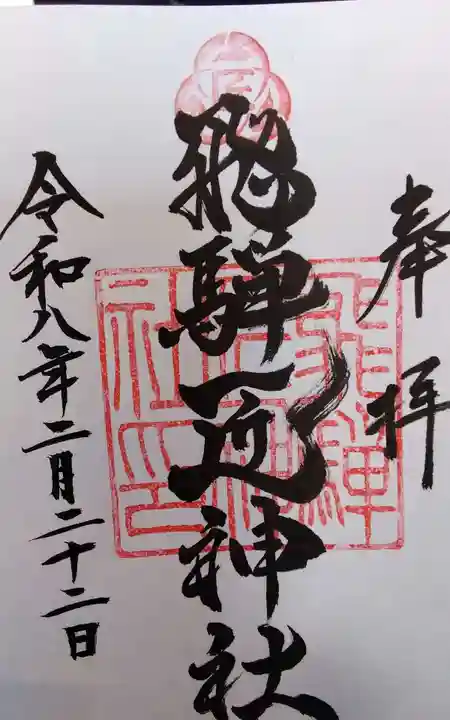 奉拝
飛騨匠神社
令和八年二月二十二日